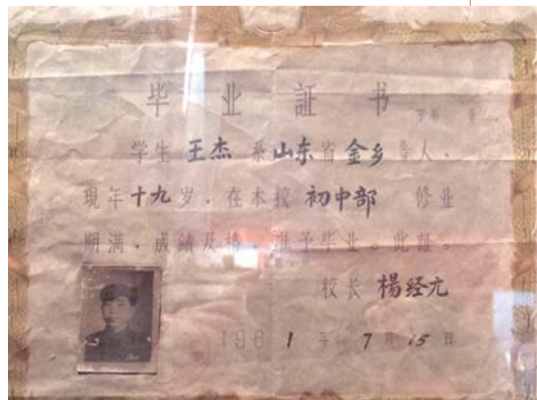 毕业証书
字第 号
学生王杰系山东省金乡县人，
現年十九岁，在本校初中部修业
期满，成績及格，准予毕业。此証。
校长 楊经元
1961年7月15日